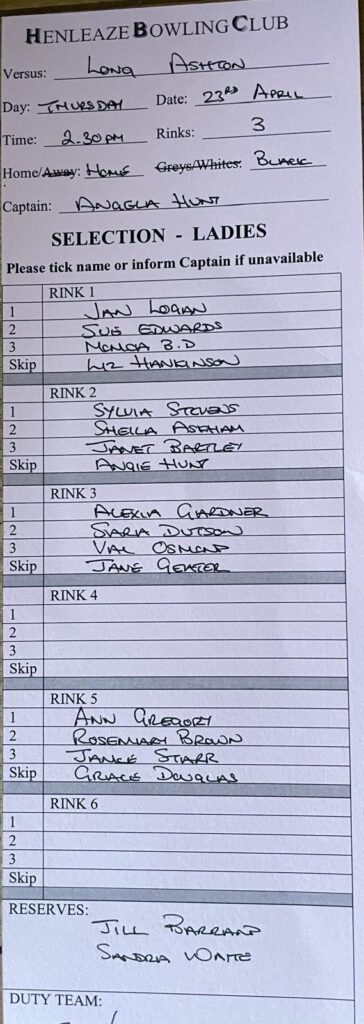 HENLEAZE BOWLING CLUB
Versus: LONG ASHTON
Day: THURSDAY Date: 23RD APRIL
Time: 2.30PM Rinks: 3
Home/Away: HOME Greys/Whites: BLACK
Captain: ANGELA HUNT
SELECTION - LADIES
Please tick name or inform Captain if unavailable
RINK 1
1 JAN LOGAN
2 SUE EDWARDS
3 MONICA B.D
Skip LIZ HANKINSON
RINK 2
1 SYLVIA STEVENS
2 SHEILA ASKHAM
3 JANET BARTLEY
Skip ANGIE HUNT
RINK 3
1 ALEXIA GARDNER
2 SARA DUTSON
3 VAL OSMOND
Skip JANE
RINK 4
1
2
3
Skip
RINK 5
1 ANN GREGORY
2 ROSEMARY BROWN
3 JANICE STARR
Skip GRACE DOUGLAS
RINK 6
1
2
3
Skip
RESERVES:
JILL BARRAND
SANDRA WAITE
DUTY TEAM: